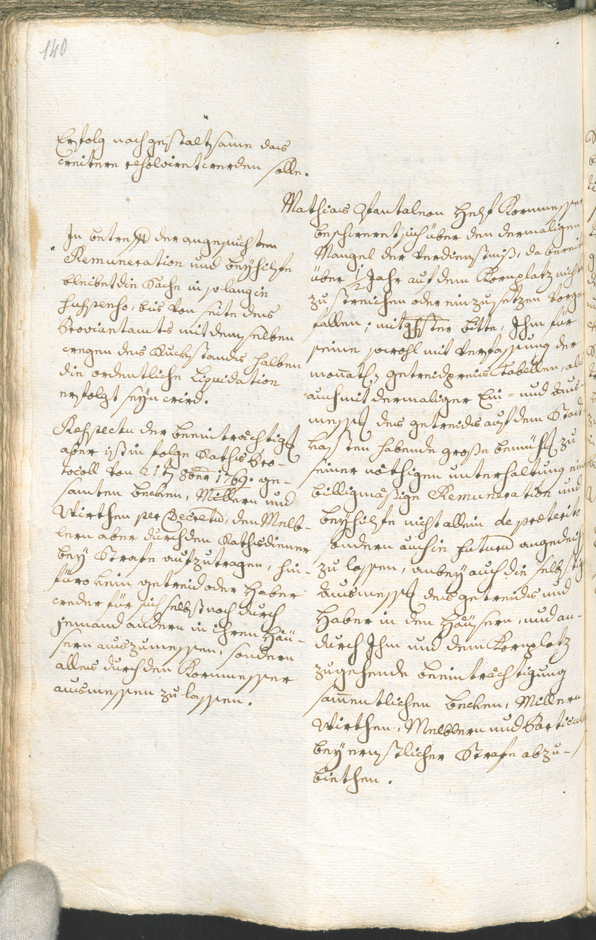 140
Erfolg nach gestaltsame das
weitere resolviret werden solle.
In betreff der angesuchten
Remuneration und beyhülfe
bleibet die Sache in so lang in
suspenso, bis von seite des
Proviantamts mit demselben
wegen des Ruckstands halben
die ordentliche Liquidation
erfolgt seyn wird.
Respectu der beeinträchtigung
aber ist in folge Raths Pro-
tocoll von 8ber 1769. ge-
samten becken, Müllern und
Wirthen per Decretum, den Melb-
lern aber durch den Rathsdiener
bey Strafe aufzutragen, hin-
füro kein getreid oder Haber
weder für sich selbst noch durch
jemand andern in ihren Häu-
sern auszumessen, sondern
alles durch den Kornmesser
ausmessen zu lassen.
Mathias Pantaleon Kornmesser
beschweret sich über den dermaligen
Mangel der Verdienstniß, da bereits
über Jahr auf dem Kornplatz nichts
zu streichen oder einzusetzen vorge-
fallen; mit bitte, Ihm für
seine sowohl mit Verfassung der
monath. getreidpreis tabellen, als
auch mit dermaliger Ein- und Aus-
messung des getreids auf dem Stadt
kasten habende große bemühung zu
seiner nöthigen unterhaltung eine
billigmäßige Remuneration und
beyhülfe nicht allein de praeterito
sondern auch in futurum angedeihen
zu lassen, anbey auch die selbstige
Ausmessung des getreids und
Haber in den Häusern, und an-
durch Ihm und dem Kornplatz
zugehende beeinträchtigung
sammentlichen becken, Müllern
Wirthen, Melblern und
bey ernstlicher Strafe abzu-
biethen.